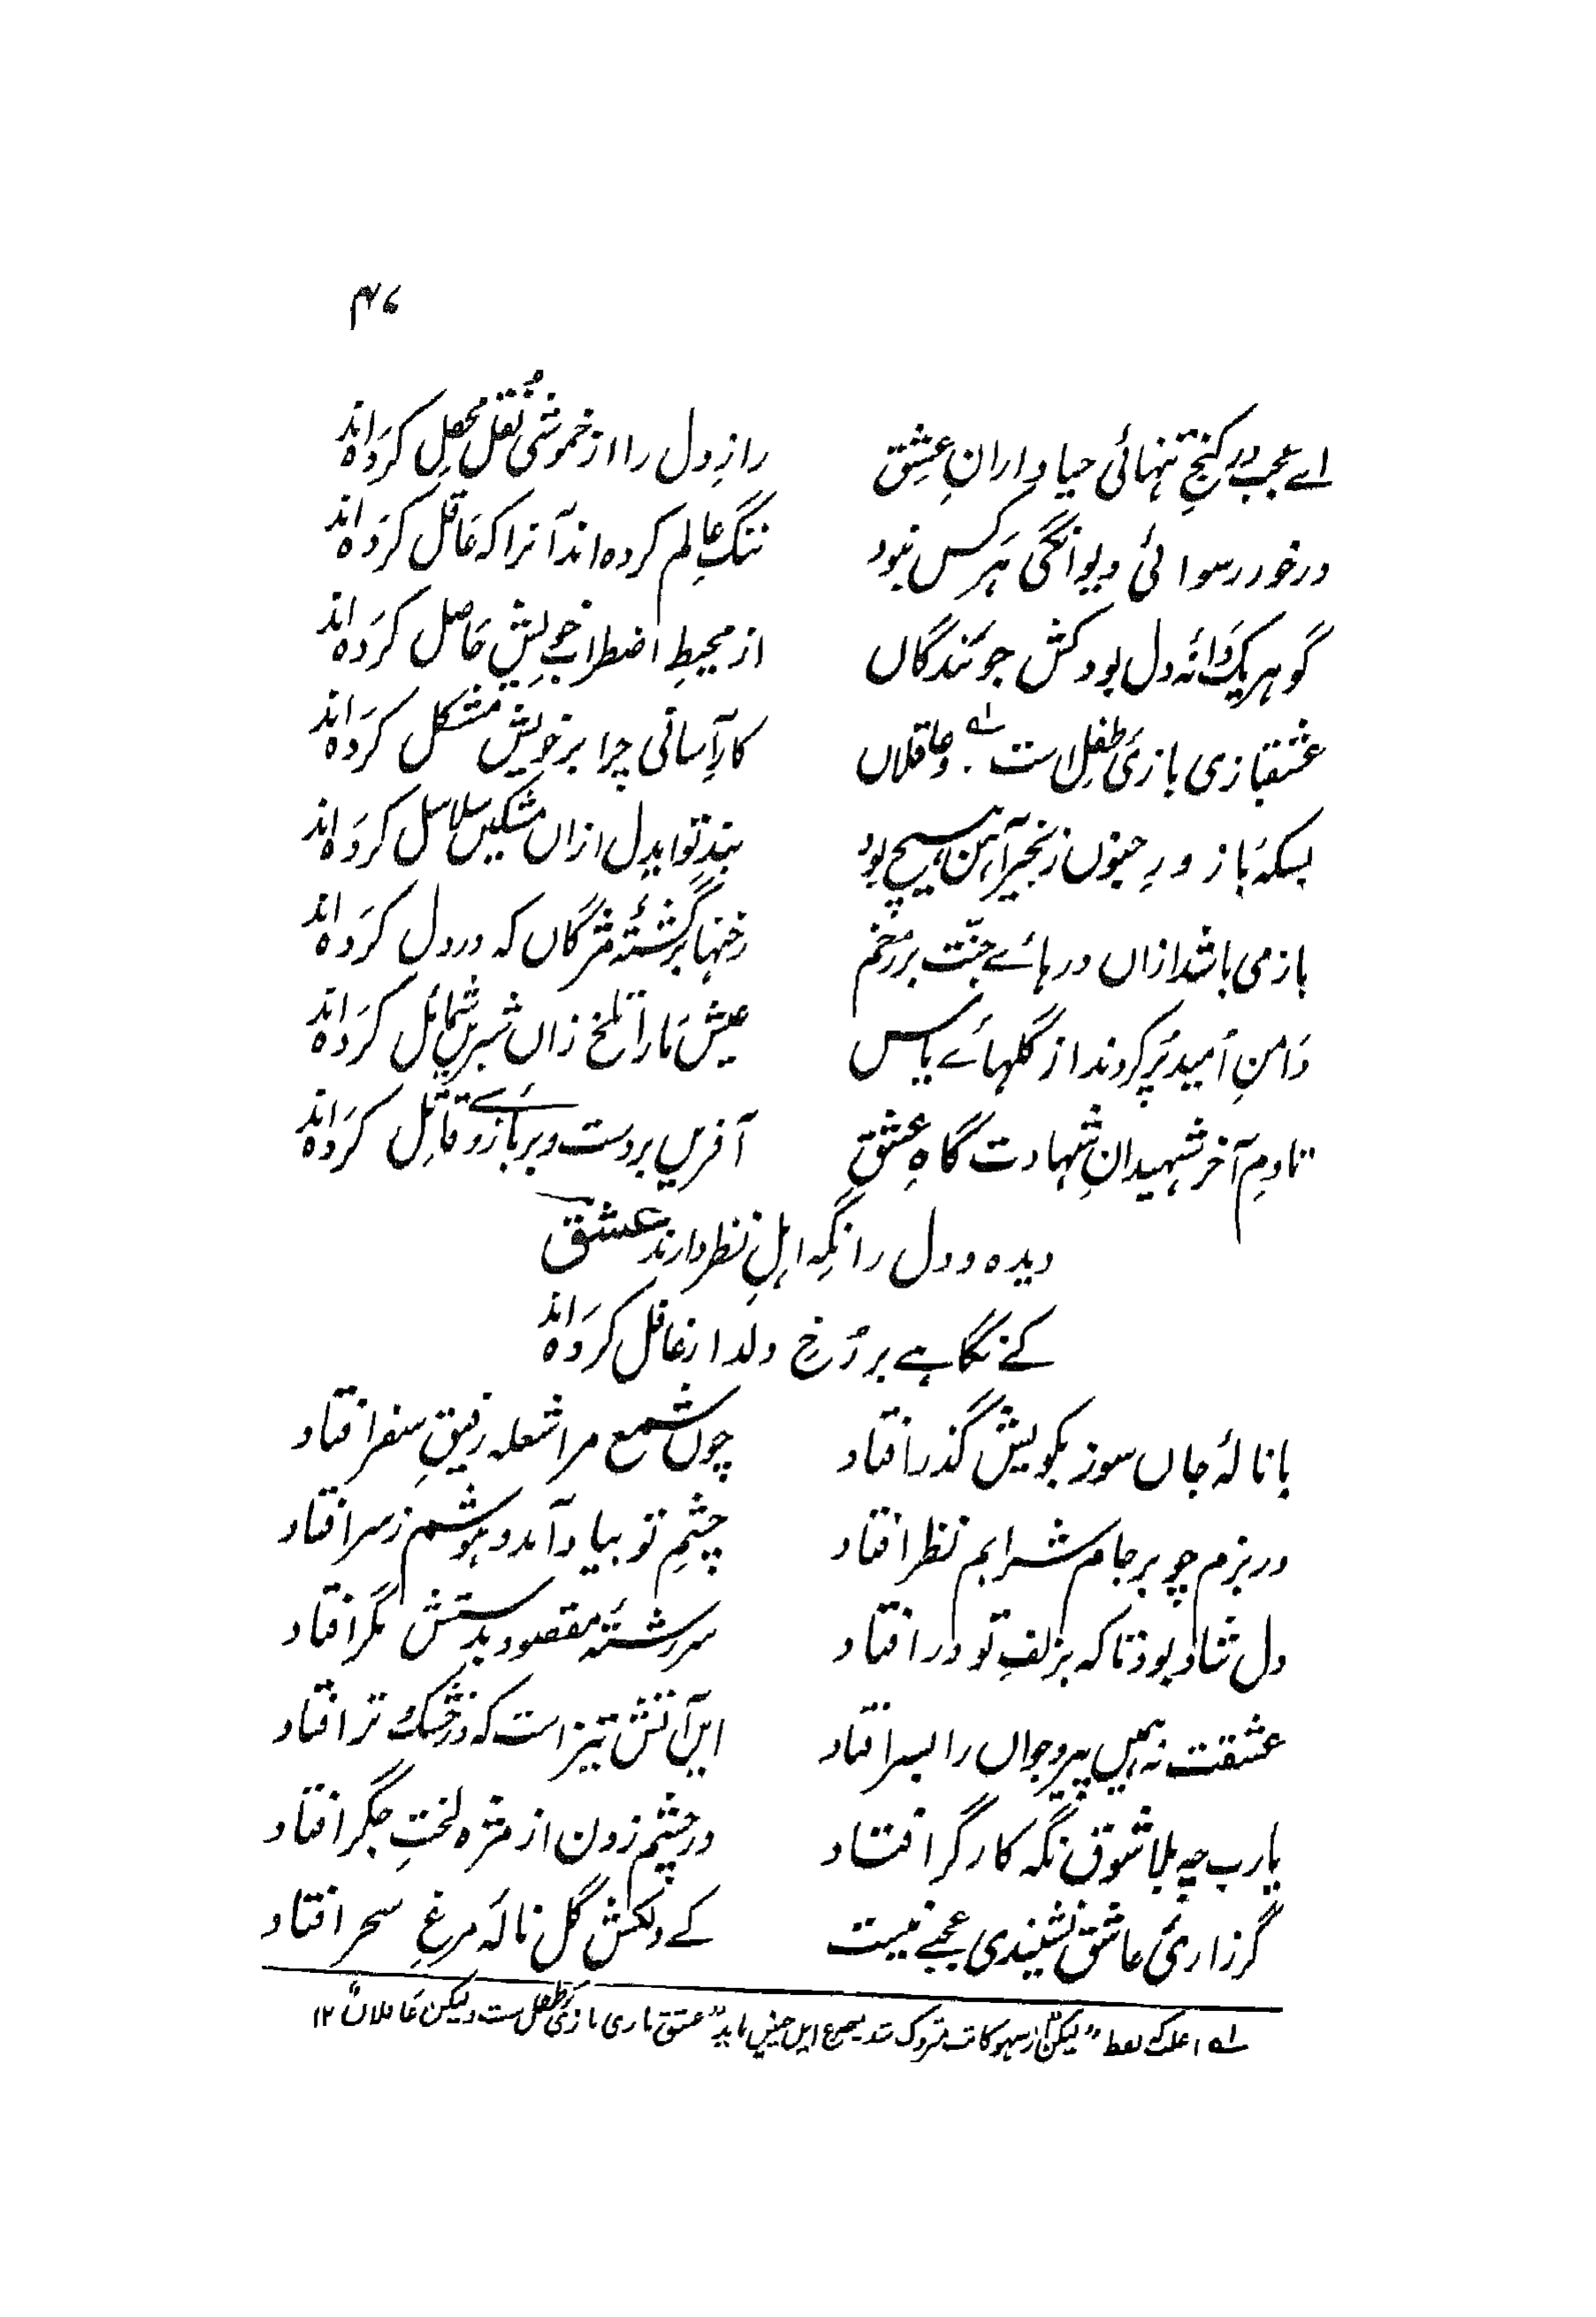 ۴۷
اے عجب در کنجِ تنہائی حیا دارانِ عشِق رازِ دل را از خموشی نُقلِ محفل کرَدہ اند
درخور رسوائی دیوانگی ہَر کس نبود ننگِ عالم کردہ اند آنرا کہ عَاقل کرَدہ اند
گوہر یک دَانۂ دل بود کش جوئندگاں از محیطِ اضطرابِ خویش حَاصل کرَدہ اند
عشقبازی بازئ طفل است ؎۱ و عاقلاں کارِ آسانی چرا بر خویش مشکل کرَدہ اند
بسکہ بَا زورِ جنوں زنجیرِ آہن ہیچ بود بندِ تو ایدل ازاں مشکیں سلاسل کرَدہ اند
باز می باشد ازاں درہائے جنّت بر رخم رخنہا برگشتۂ مژگاں کہ در دل کرَدہ اند
دَامنِ اُمید پُر کردند از گلہائے یاس عیش مَارا تلخ زاں شیریں شمائل کرَدہ اند
تا دمِ آخر شہیدانِ شہادت گاہِ عشقِ آفریں بر دست و بر بازوئے قاتِل کرَدہ اند
دیدہ و دل را نگہ اہلِ نظر دارند عشق
کے نگاہے بر رُخِ دلدار غافل کرَدہ اند
با نالۂ جاں سوز بکویش گذر افتاد چوں شمع مرا شعلہ رفیقِ سفر افتاد
در بزم چو بر جام شرابم نظر افتاد چشمِ تو بیاد آمد و ہوشم ز سر افتاد
دل شاد بود تا کہ بزلفِ تو در افتاد سررشتۂ مقصود بدستش مگر افتاد
عشقت نہ ہمیں پیر و جواں را بسر افتاد ایں آتش تیز است کہ در خشک و تر افتاد
یارب چہ بلا شوق نگہ کارگر افتاد در چشم زدن از مژہ لختِ جگر افتاد
گر زارئ عاشق نشنیدی عجبے نیست کے دلکش گل نالۂ مرغِ سحر افتاد
؎۱ اغلب کہ لفظ "لیکن" از سہو کاتب متروک شد مصرع ایں چنیں باید "عشق بازی بازئ طفل ست و لیکن عَاقلاں" ۱۲